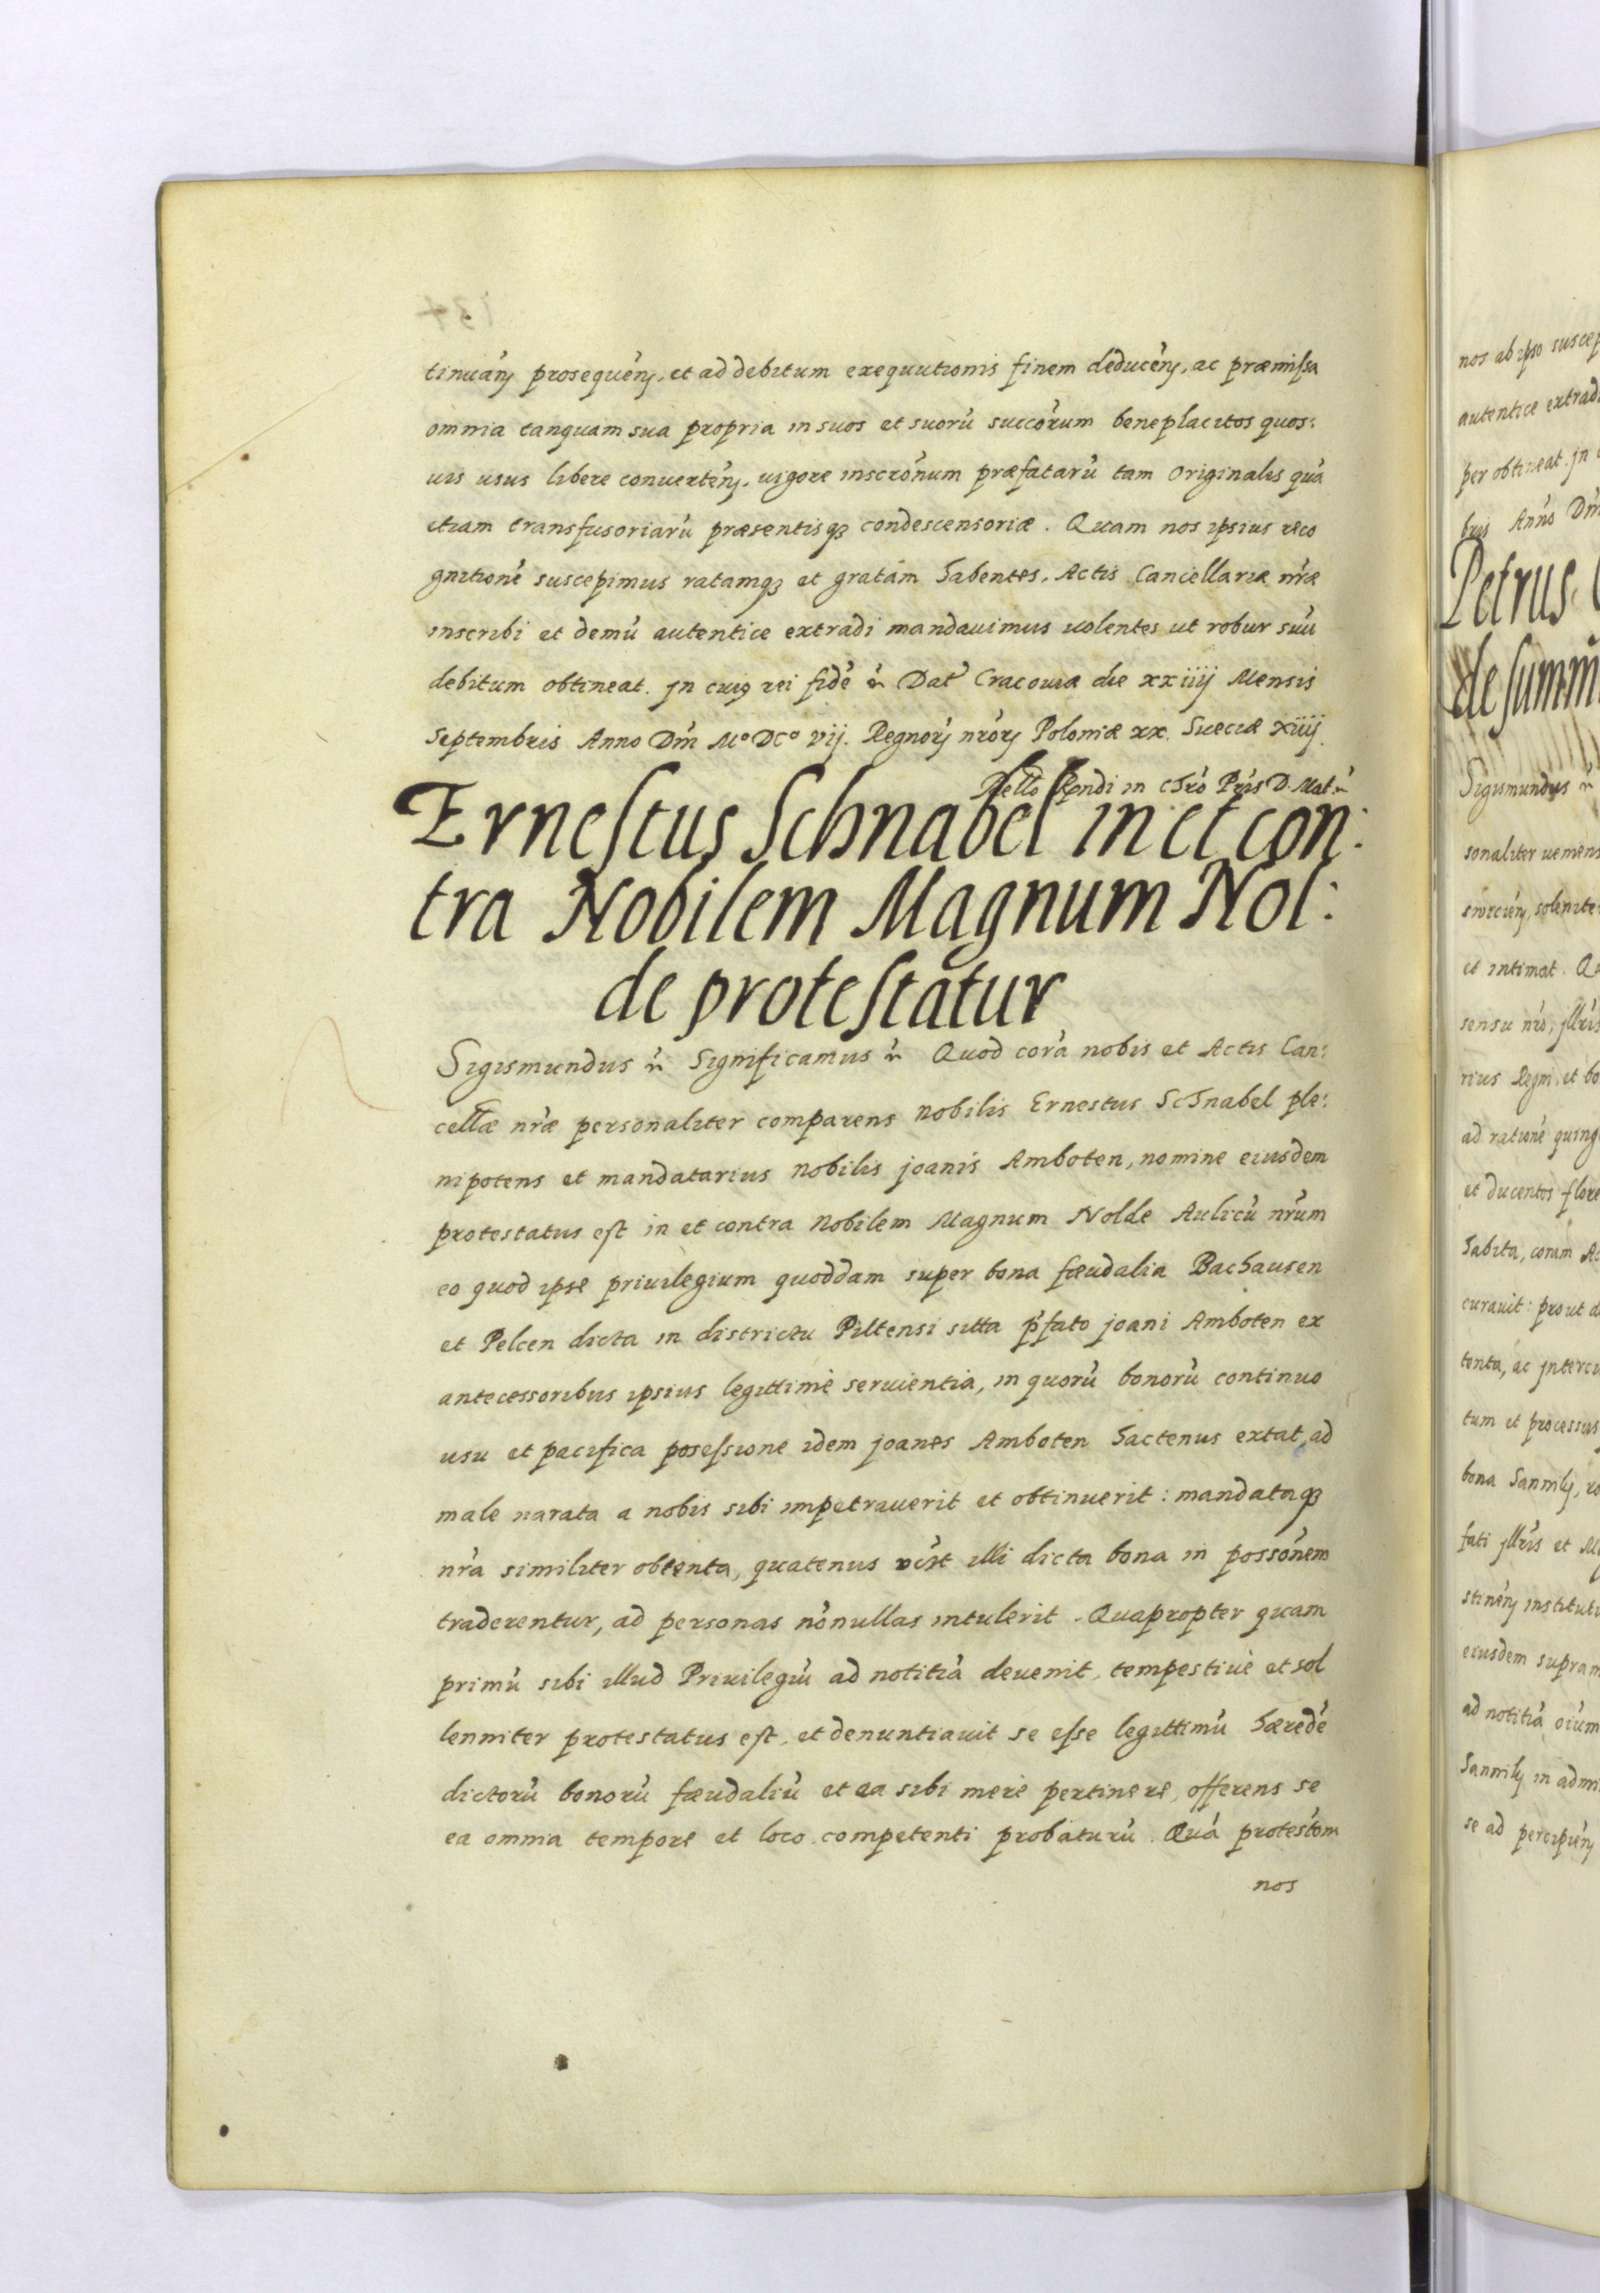 tinuan̄ prosequen̄, et ad debitum exequutionis finem deducen̄, ac præmissa
omnia tanquam sua propria in suos et suorū succorum beneplacitos quos:
uis usus libere conuerten̄, uigore inscronum præfatarū tam Originales quā
etiam transfusoriarū præsentisq3 condescensoriæ. Quam nos ipsius reco
gnitionē suscepimus ratamq3 et gratam habentes, Actis Cancellariæ nr̄æ
inscribi et demū autentice extradi mandauimus uolentes ut robur suū
debitum obtineat. Jn cuiq rei fidē Dat Cracouiæ die xxiiij Mensis
Septembris Anno Dn̄i Mo DCo vij. Regnor nror Poloniæ xx. Sueciæ xiiij.
in Pris D. Mat
Ernestus Schnabel in et con:
tra Nobilem Magnum Nol:
de protestatur
Sigismundus Significamus Quod corā nobis et Actis Can:
cellæ nr̄æ personaliter comparens Nobilis Ernestus Schnabel ple:
nipotens et mandatarius Nobilis Joanis Amboten, nomine eiusdem
protestatus est in et contra Nobilem Magnum Nolde Aulicū nr̄um
eo quod ipse priuilegium quoddam super bona fæudalia Bachausen
et Pelcen dicta in districtu Piltensi sitta p̄fato Joani Amboten ex
antecessoribus ipsius legittimè seruientia, in quorū bonorū continuo
usu et pacifica posessione idem Joanes Amboten hactenus extat, ad
male narata a nobis sibi impetrauerit et obtinuerit: mandataq3
nr̄a similiter obtenta, quatenus illi dicta bona in possonem
traderentur, ad personas nōnullas intulerit. Quapropter quam
primū sibi illud Priuilegiū ad notitiā deuenit, tempestiuè et sol
lenniter protestatus est, et denuntiauit se esse legittimū hæredē
dictorū bonorū fæudaliū et ea sibi merè pertinere, offerens se
ea omnia tempore et loco competenti probaturū. Quā protestom
nos
nos ab ipso suscep
autentice extradi
per obtineat. Jn
bris Anno Dn̄i
Petrus
de summ
Sigismundus
sonaliter
et intimat. Qu
sensu nr̄o,
rius Regni, et bo
ad rationē quing
et ducentos flore
habita, coram Ac
curauit: prout d
tenta, ac
tum et processus
bona
fati Jllris et
institut
eiusdem supram
ad notitiā
in admi
se ad